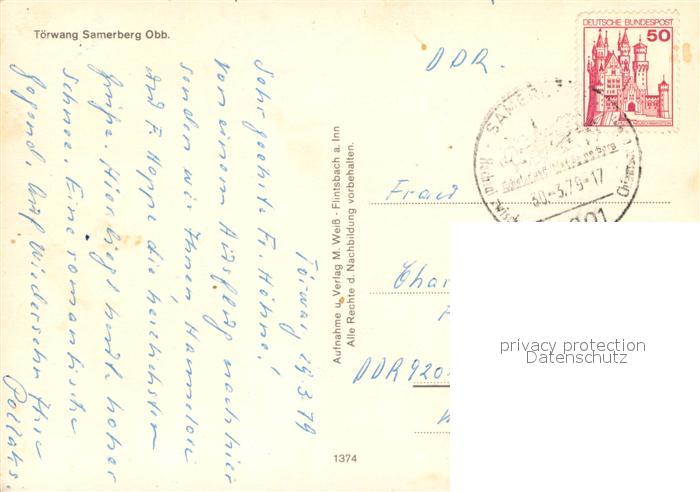 Törwang Samerberg Obb.
Törwang, 29.3.79
Sehr geehrte Fr. Höhne!
Von einem Ausflug nach hier
senden wir Ihnen
und F. Hoppe die herzlichsten
Grüße. Hier liegt heute hoher
Schnee. Eine romantische
Gegend. Auf Wiedersehn Ihre
Aufnahme u. Verlag M. Weiß - Flintsbach a. Inn
Alle Rechte d. Nachbildung vorbehalten.
1374
DDR.
DEUTSCHE BUNDESPOST
50
30.-3.79-17
Frau
DDR 920
privacy protection
Datenschutz